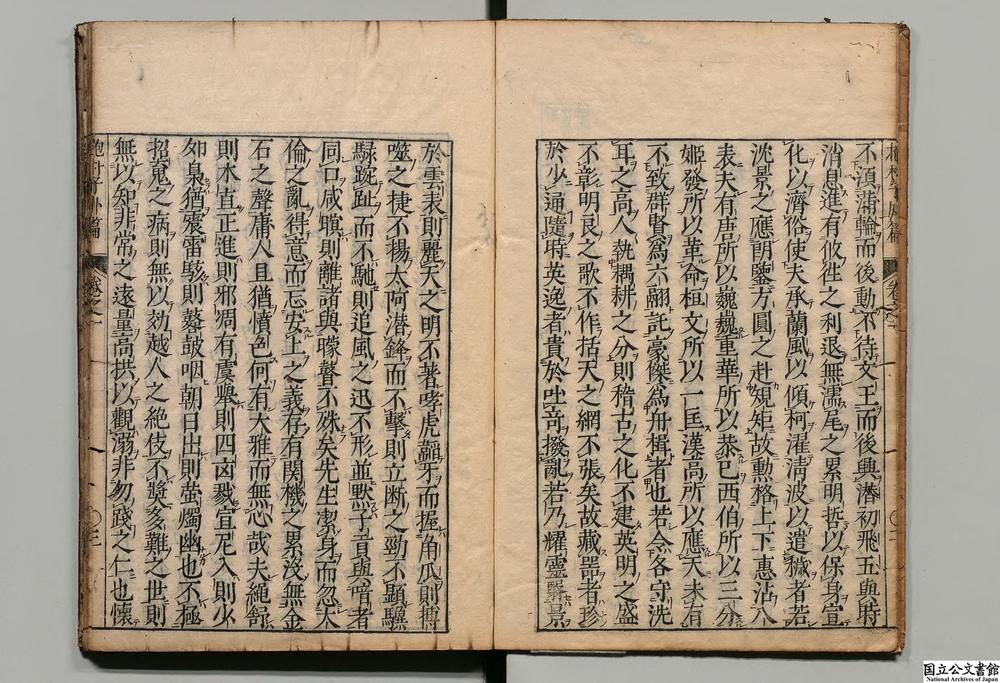 不須蒲輪而後動不待文王而後興潛初飛五與時
消息進有攸往之利退無濡尾之累明哲以保身宣
化以濟俗使夫承蘭風以傾柯濯清波以遣穢者若
沈景之應朗鑒方圓之赴規矩故勲格上下惠沾八
表夫有唐所以巍巍重華所以恭已西伯所以三分
姬發所以革命桓文所以一匡漢高所以應天未有
不致群賢為六翮託豪傑為舟楫者也若令各守洗
耳之高人執耦耕之分則稽古之化不建英明之盛
不彰明良之歌不作括天之網不張矣故藏器者珍
於少通隨時英逸者貴於吐奇撥亂若乃耀靈翳景
於雲表則麗天之明不著哮虎韜牙而握角爪則搏
噬之捷不揚太阿潜鋒而不擊則立断之勁不顕驥
騄踠趾而不馳則追風之迅不形並默子音與喑者
同口咸瞑則離諸與矇瞽不殊矣先生潔身而忽大
倫之亂得意而忘安上之義存有関機之累沒無金
石之聲庸人且猶憤色何有大雅而無心哉夫繩舒
則木直正進則邪凋有虞舉則四凶戮宣尼入則少
卯梟猶震雷駭則鼛鼓咽朝日出則螢燭幽也不極
招䰟之病則無以効越人之絶伎不奬多難之世則
無以知非常之遠量高拱以觀溺非勿踐之仁也懷
抱朴子外篇 卷之一 〇三
国立公文書館
National Archives of Japan